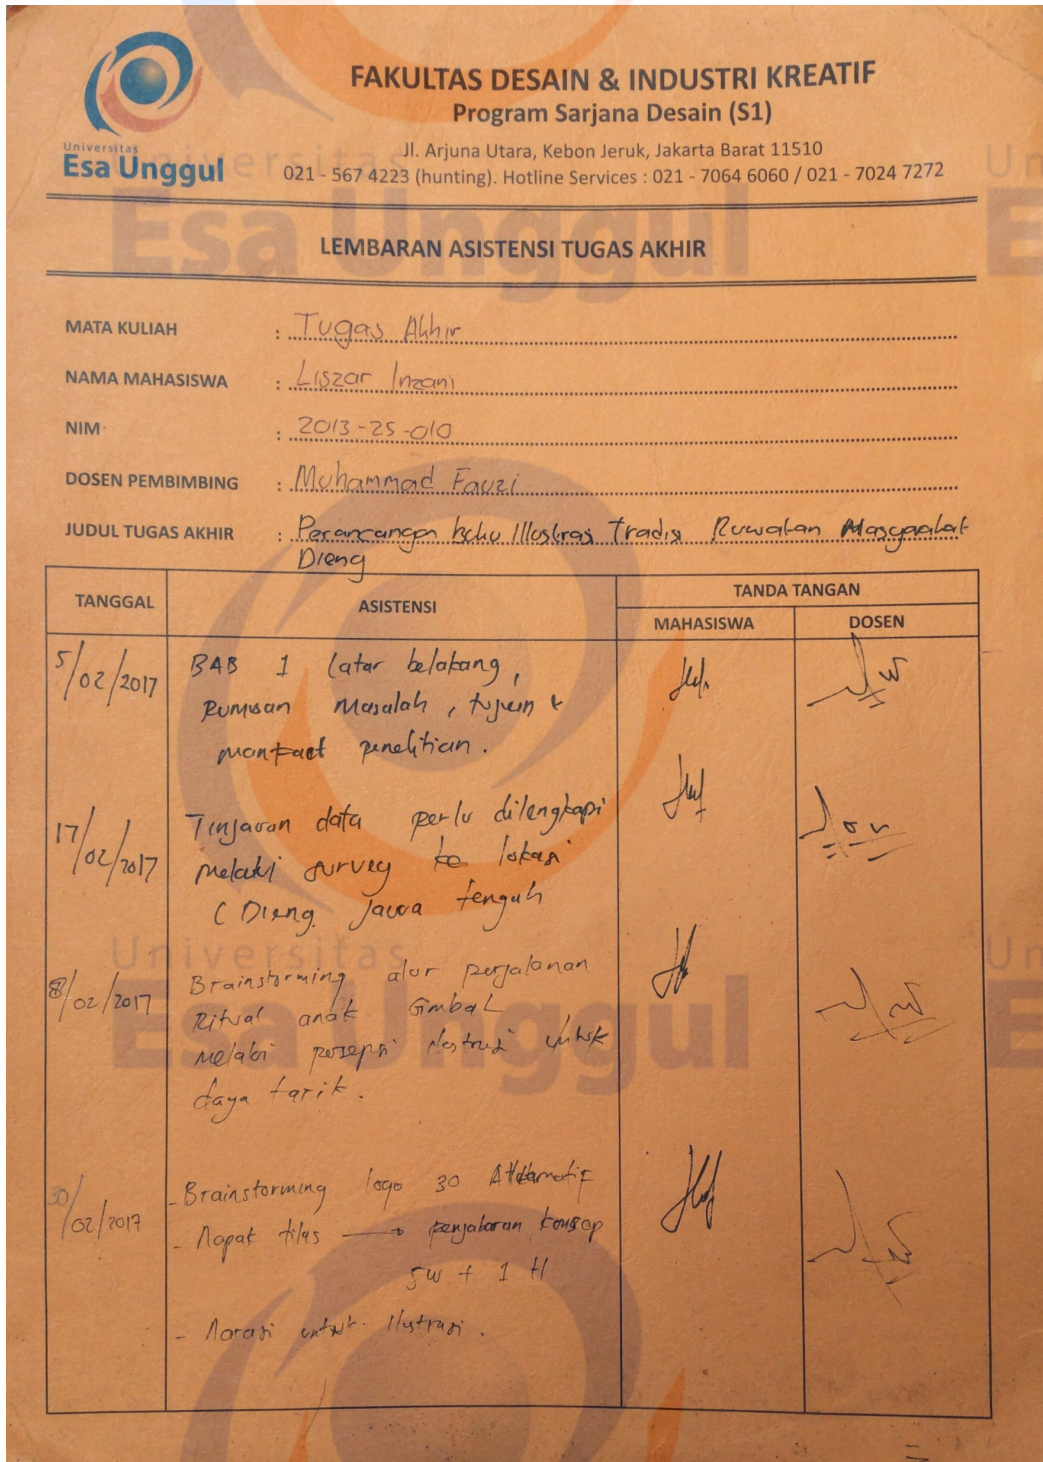 Universitas
Esa Unggul
FAKULTAS DESAIN & INDUSTRI KREATIF
Program Sarjana Desain (S1)
Jl. Arjuna Utara, Kebon Jeruk, Jakarta Barat 11510
021 - 567 4223 (hunting). Hotline Services : 021 - 7064 6060 / 021 - 7024 7272
LEMBARAN ASISTENSI TUGAS AKHIR
MATA KULIAH : Tugas Akhir
NAMA MAHASISWA : Liszar Inzani
NIM : 2013-25-010
DOSEN PEMBIMBING : Muhammad Fauzi
JUDUL TUGAS AKHIR : Perancangan buku Illustrasi Tradisi Ruwatan Masyarakat
Dieng
TANGGAL ASISTENSI TANDA TANGAN
MAHASISWA DOSEN
5/02/2017 BAB 1 latar belakang,
Rumusan Masalah, tujuan &
manfaat penelitian.
17/02/2017 Tinjauan data perlu dilengkapi
melalui survey ke lokasi
( Dieng Jawa tengah
8/02/2017 Brainstorming alur perjalanan
Ritual anak Gimbal
melalui persepsi ilustrasi untuk
daya tarik.
30/02/2017 - Brainstorming logo 30 Alternatif
- Napak tilas → penjabaran konsep
5W + 1 H
- Narasi untuk Ilustrasi.
Universitas
Esa Unggul